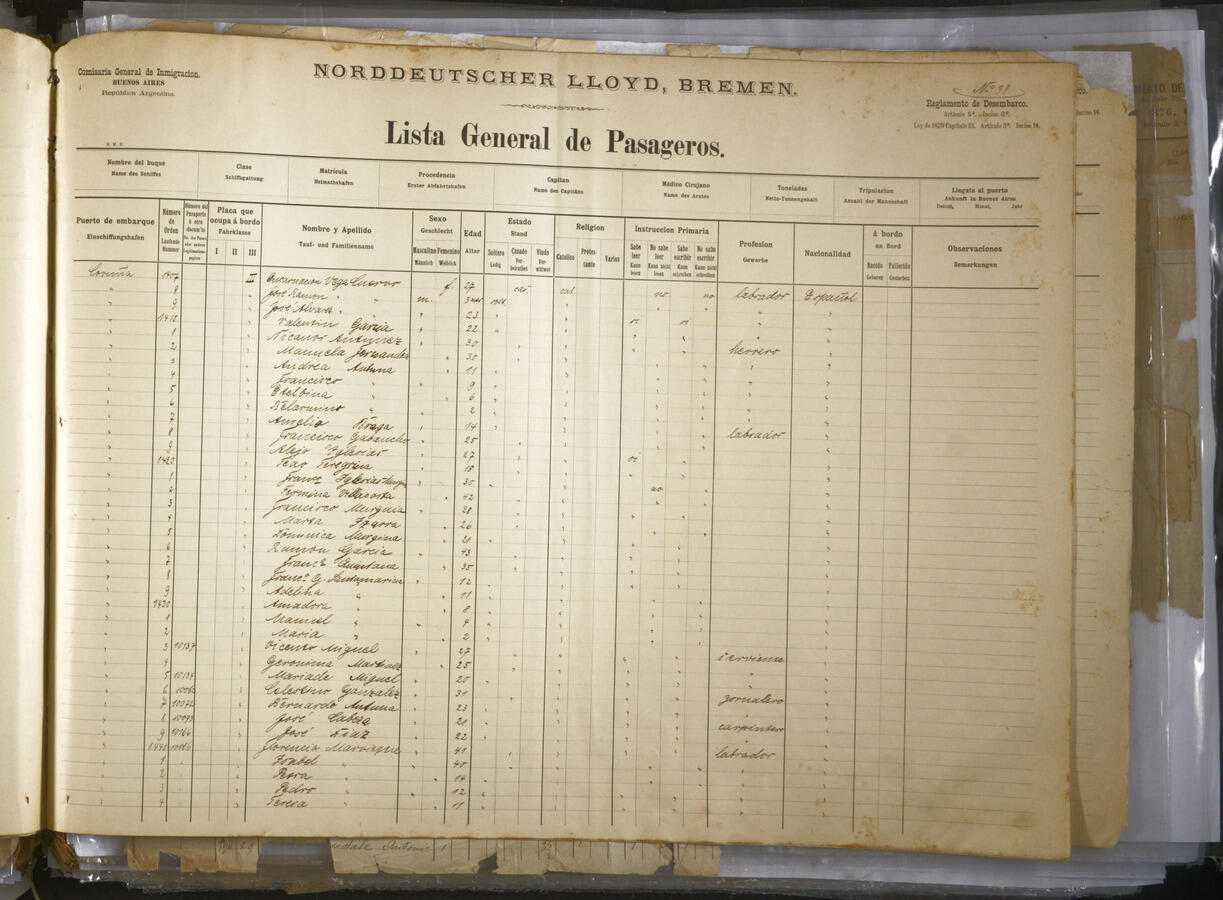 Comisaria General de Inmigracion.
BUENOS AIRES
República Argentina.
NORDDEUTSCHER LLOYD, BREMEN.
Nº 38
Reglamento de Desembarco.
Lista General de Pasageros.
Nombre del buque
Name des Schiffes
Clase
Schiffsgattung
Matrícula
Heimathshafen
Procedencia
Erster Abfahrtshafen
Capitan
Name des Capitäns
Médico Cirujano
Name des Arztes
Toneladas
Netto-Tonnengehalt
Tripulacion
Anzahl der Mannschaft
Llegata al puerto
Ankunft in Buenos Aires
Datum, Monat, Jahr
Puerto de embarque
Einschiffungshafen
Número de Orden
Laufende Nummer
Placa que ocupa á bordo
Fahrklasse
I II III
Nombre y Apellido
Tauf- und Familienname
Sexo
Geschlecht
Masculino Femenino
Männlich Weiblich
Edad
Alter
Estado
Stand
Soltero Casado Viudo
Ledig Verheirathet Verwittwet
Religion
Catolico Protestante Varios
Instruccion Primaria
Sabe leer No sabe leer Sabe escribir No sabe escribir
Kann lesen Kann nicht lesen Kann schreiben Kann nicht schreiben
Profesion
Gewerbe
Nacionalidad
á bordo
an Bord
Nacido Fallecido
Geboren Gestorben
Observaciones
Bemerkungen
Coruña 1407 III Encarnacion Vega Cuervo f. 27 cas. cat. no no labrador Español
8 José Ramon " " m.
9 José Alvarez " 23
1410 Valentin Garcia 22 si si
1 Nicanor Antunez 30 herrero
2 Manuela Fernandez 30
3 Andrea Antuna 11
4 Francisco " 9
5 Etelbina " 6
6 Belarmino " 2
7 Aurelio Braga 14 labrador
8 Francisco 25
9 Alejo Yglesias 27 si
1420 Peregrina 18
1 Franco Yglesias 30 no
2 Fermina 42
3 Francisco Murguia 28
4 Marta 26
5 Dominica 21
6 Ramon Garcia 43
7 Franca Quintana 35
8 Franco G. Santamarina 12
9 Adelina " 11
1430 Amadora " 8
1 Manuel " 4
2 Maria " 2
3 10137 Vicente Miguel 27 sirviente
4 Geronima Martinez 25
5 Maria de Miguel 20
6 Celestino Gonzalez 31 jornalero
7 10072 Bernardo Antuna 23
8 José Cabeza 21 carpintero
9 10166 José Diaz 22
1440 10166 Florencio 41 labrador
1 Ysabel " 40
2 Petra " 14
3 Pedro " 12
4 Teresa " 11